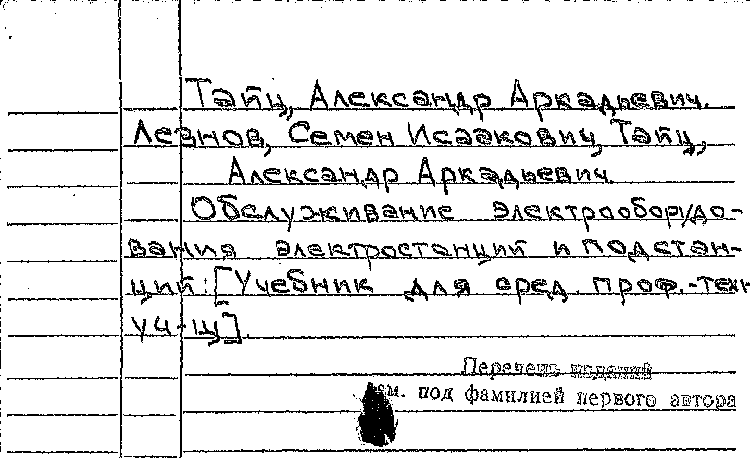 Тайц, Александр Аркадьевич.
Лезнов, Семен Исаакович, Тайц,
Александр Аркадьевич.
Обслуживание электрооборудо-
вания электростанций и подстан-
ций: [Учебник для сред. проф.-техн
уч-щ].
Перечень изданий
см. под фамилией первого автора